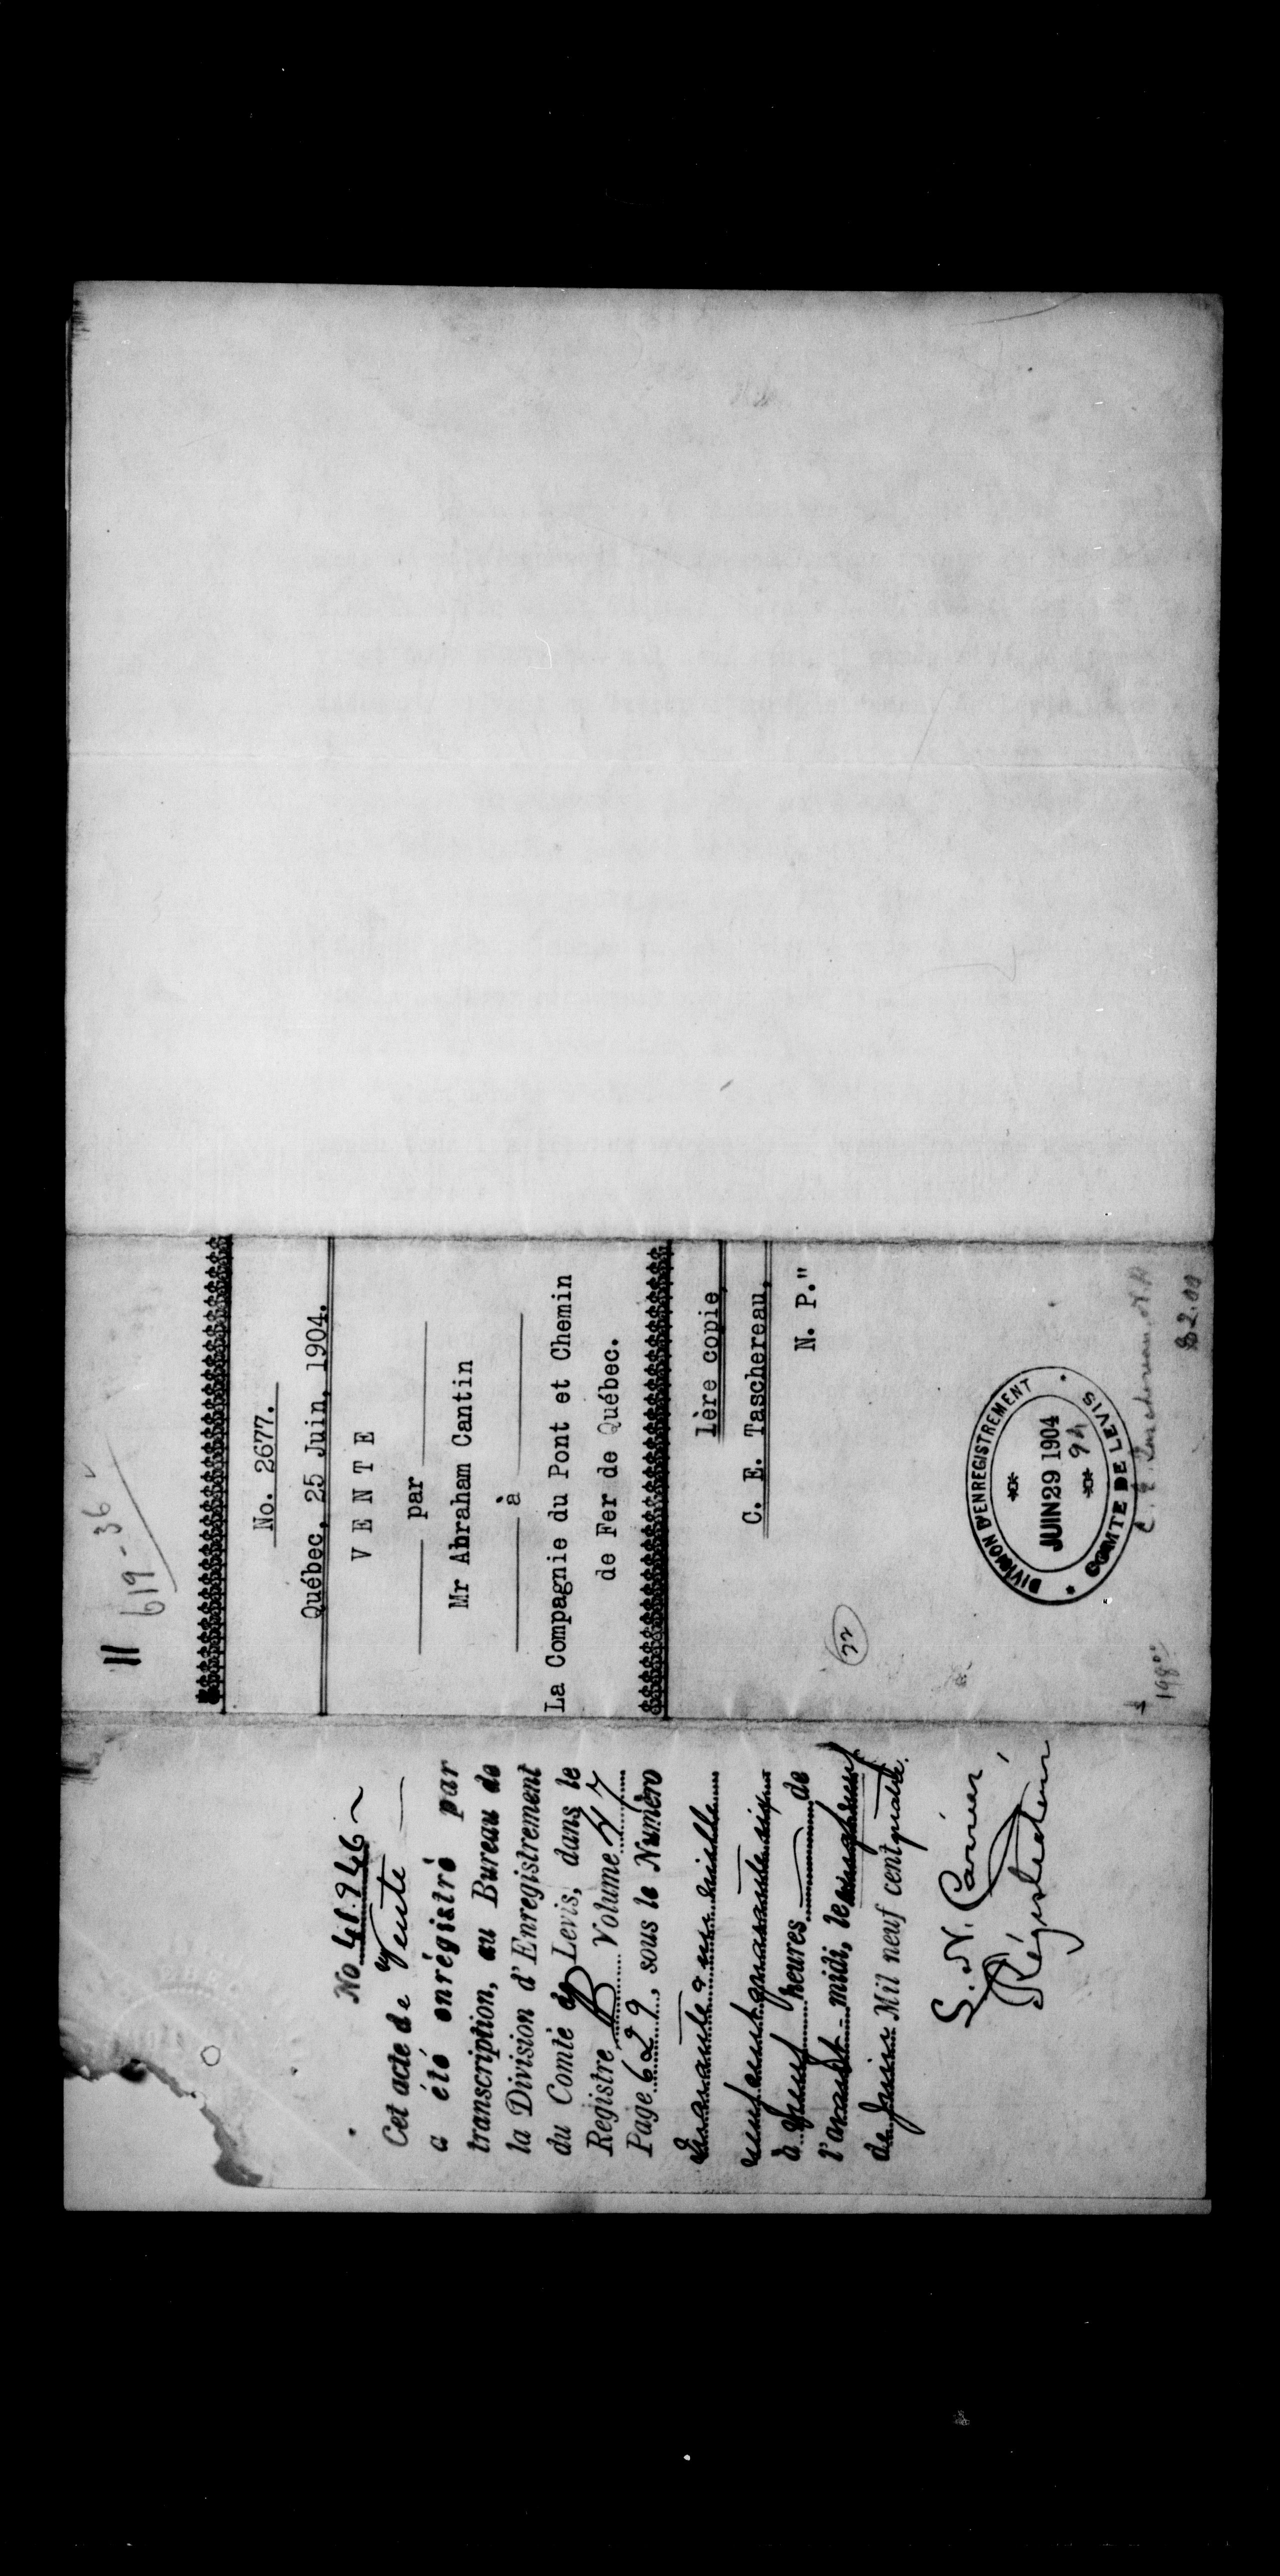 No 41.946
Cet acte de Vente
a été enrégistré par
transcription, au Bureau de
la Division d'Enregistrement
du Comté de Levis, dans le
Registre B Volume 47
Page 629, sous le Numéro
quarante & un mille
neuf cent quarante six
à neuf heures de
l'avant-midi, le vingt neuf
de Juin Mil neuf cent quatre.
Régistrateur
11 619-36
No. 2677.
Québec, 25 Juin, 1904.
V E N T E
par
Mr Abraham Cantin
à
La Compagnie du Pont et Chemin
de Fer de Québec.
1ère copie,
C. E. Taschereau,
N. P."
22
DIVISION D'ENREGISTREMENT
JUIN 29 1904
9 A
COMTE DE LEVIS
C. E. Taschereau, N.P.
$2.00
$198.00